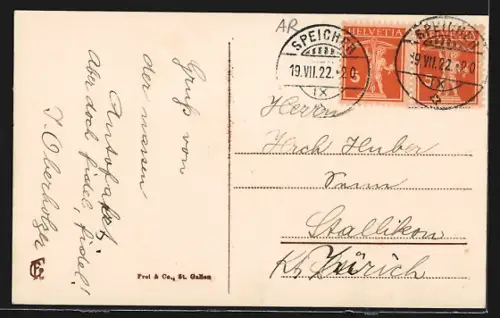 AR
HELVETIA
SPEICHER
19.VII.22.-20
IX
SPEICHER
19.VII.22.-20
IX
Gruß von
der nassen
Autofahrt!
Aber doch fidel, fidel!
Oberholzer
Herrn
Huber
Stallikon
Kt. Zürich
Frei & Co., St. Gallen